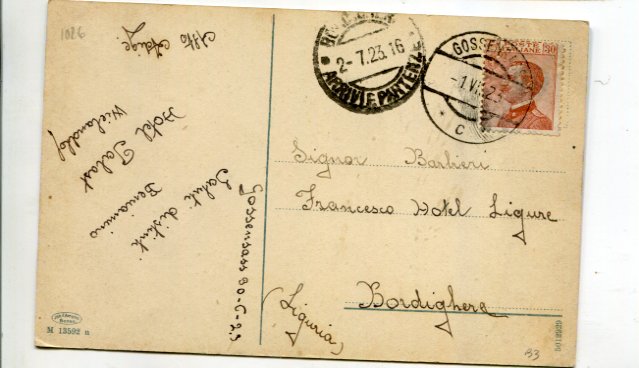 1026
Alto Adige
Hotel Palast
Wielandhof
Saluti distinti
Beniamino
Gossensass 30-6-23
2-7.23.16
ARRIVI E PARTENZE
GOSSEN
-1.VII.23
* C
POSTE ITALIANE 30
Signor Barbieri
Francesco Hotel Ligure
Bordighera
(Liguria)
M 13592 n
5012929
B3